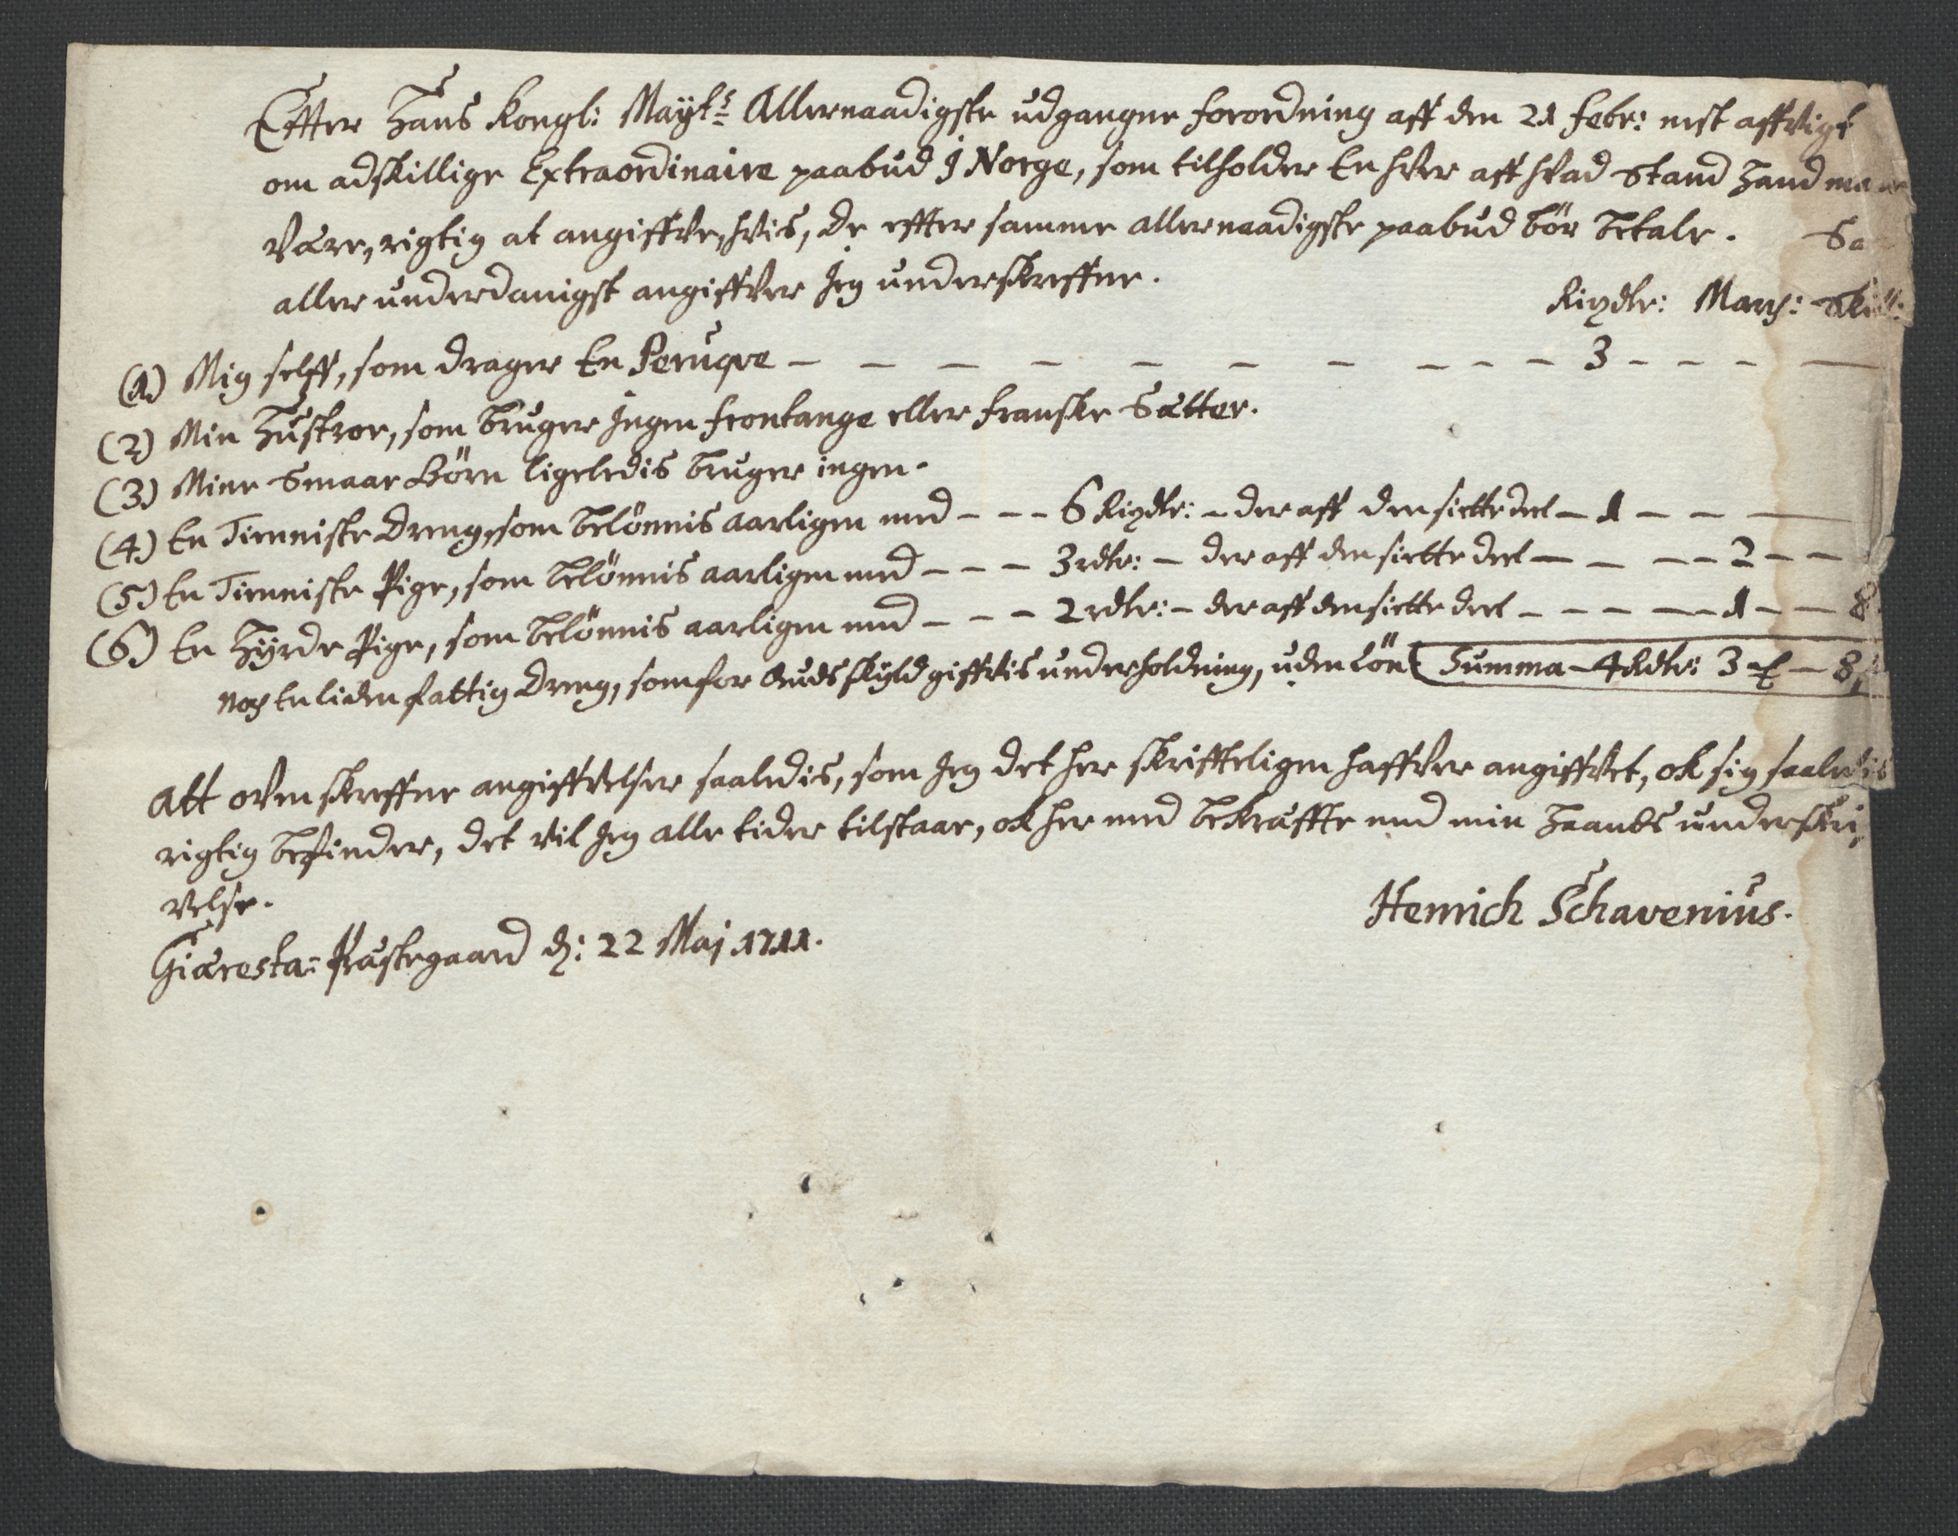 Efter Hans Kongl: Mayts Allernaadigste udgangne forordning aff den 21 Febr: nest affvigt
om adskillige Extraordinaire paabud J Norge, som tilholder En hver aff hvad Stand Hand maa
være, rigtig at angiffve, hvis, de efter samme allernaadigste paabud bör betale. Saa
aller underdanigst angiffver Jeg underskreffne.
Rixdlr: March: Skill:
(1) Mig selff, som drager En Peruqve — — — — — — — — — — 3 - - - —
(2) Min Hustroe, som bruger Jngen frontange eller franske Sætter.
(3) Mine Smaae Börn ligeledis bruger ingen.
(4) En Tienniste Dreng, som belönnis aarligen med - - - 6 Rixdlr: - der aff den siette deel - 1 - - —
(5) En Tienniste Pige, som belönnis aarligen med - - - 3 rdlr: - der aff den siette deel — - — - 2 - -
(6) En Hyrde Pige, som belönnis aarligen med - - - 2 rdlr: - der aff den siette deel - - - — - 1 - - 8
noch En liden fattig Dreng, som for Guds skyld giffvis underholdning, uden Lön Summa - 4 Rdlr: 3 ℳ - 8
Att ovenskreffne angiffvelser saaledis, som Jeg det her skrifteligen haffver angiffvet, ok sig saaledis
rigtig befinder, det vil Jeg alle tider tilstaae, ok her med bekræffte med min Haands underskri,
velse.
Henrich Schavenius.
Giæresta: Præstegaard d: 22 Maj 1711.